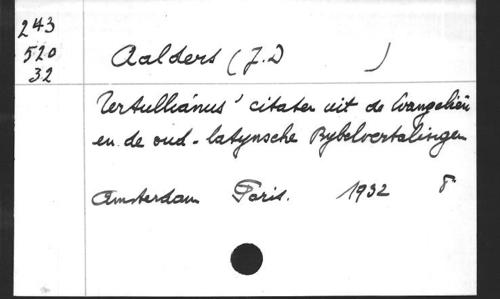 243
520
32
Aalders (J.D )
Tertullianus' citaten uit de Evangeliën
en de oud-latynsche Bybelvertalingen
Amsterdam Paris. 1932 8°